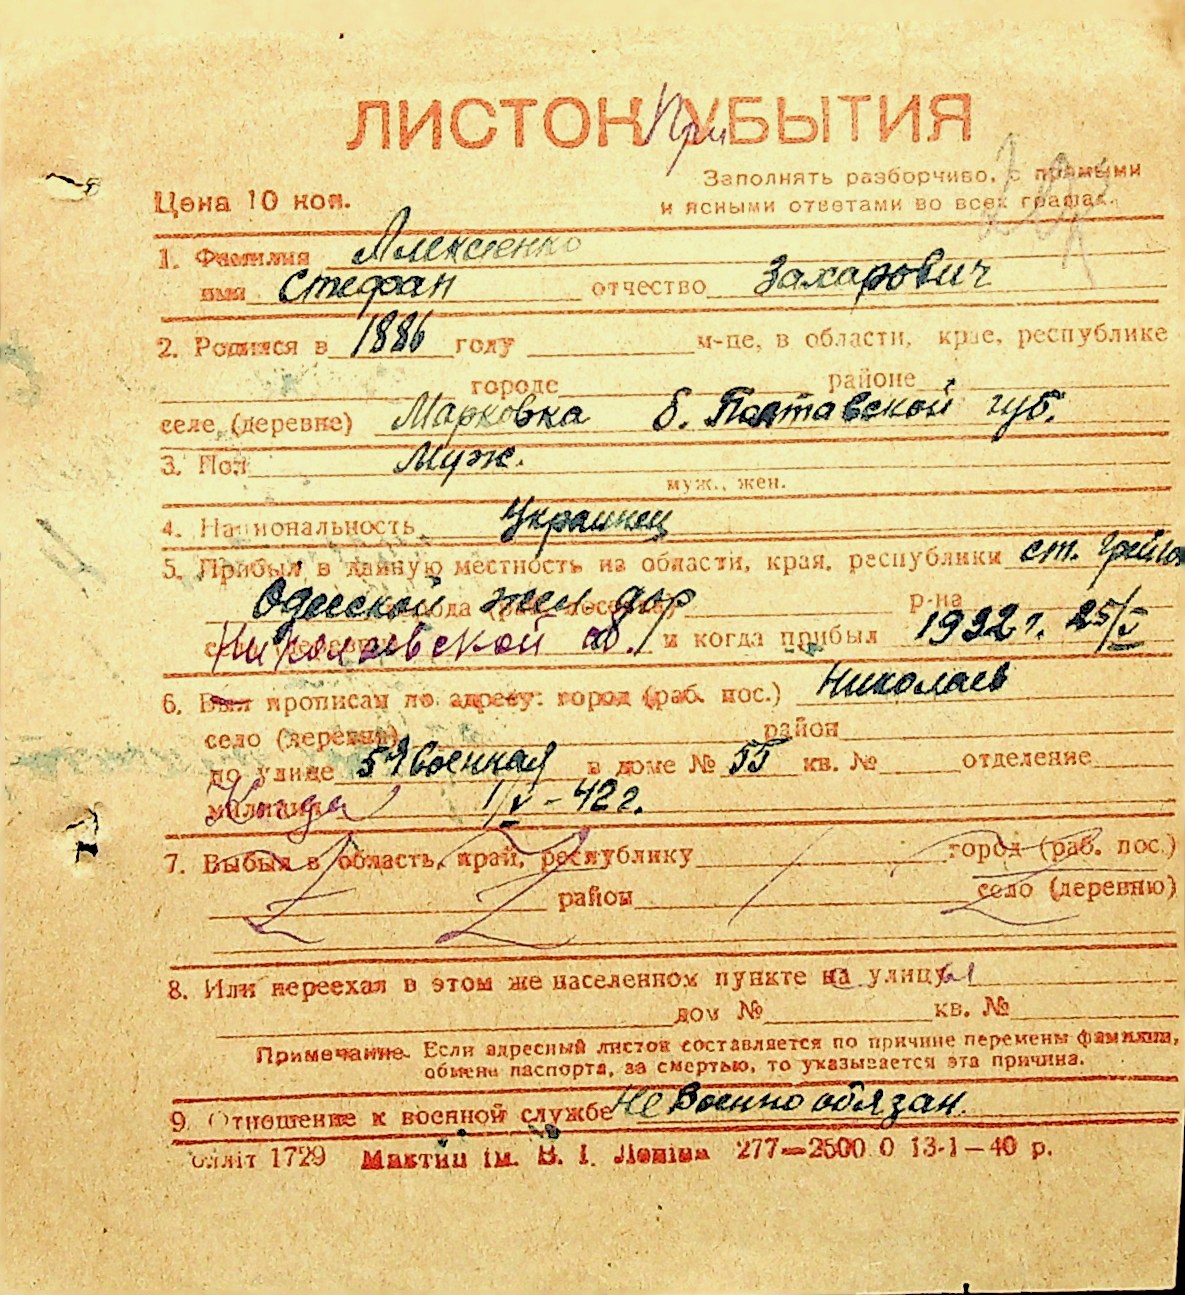 ЛИСТОК При УБЫТИЯ
Цена 10 коп.
Заполнять разборчиво, с прямыми
и ясными ответами во всех графах.
1. Фамилия Алексеенко
имя Стефан отчество Захарович
2. Родился в 1886 году м-це, в области, крае, республике
городе районе
селе (деревне) Марковка б. Полтавской губ.
3. Пол Муж.
муж., жен.
4. Национальность Украинец
5. Прибыл в данную местность из области, края, республики ст.
Одесской жел дор р-на
Николаевской об. и когда прибыл 1922 г. 25/V
6. Был прописан по адресу: город (раб. пос.) Николаев
село (деревня) район
по улице 5 Военная в доме № 55 кв. № отделение
милиции Когда 1/V-42 г.
7. Выбыл в область, край, республику город (раб. пос.)
район село (деревню)
8. Или переехал в этом же населенном пункте на улицу
дом № кв. №
Примечание. Если адресный листок составляется по причине перемены фамилии,
обмена паспорта, за смертью, то указывается эта причина.
9. Отношение к военной службе Не военно обязан.
1729 ім. В. І. Леніна 277—2500 0 13-1—40 р.